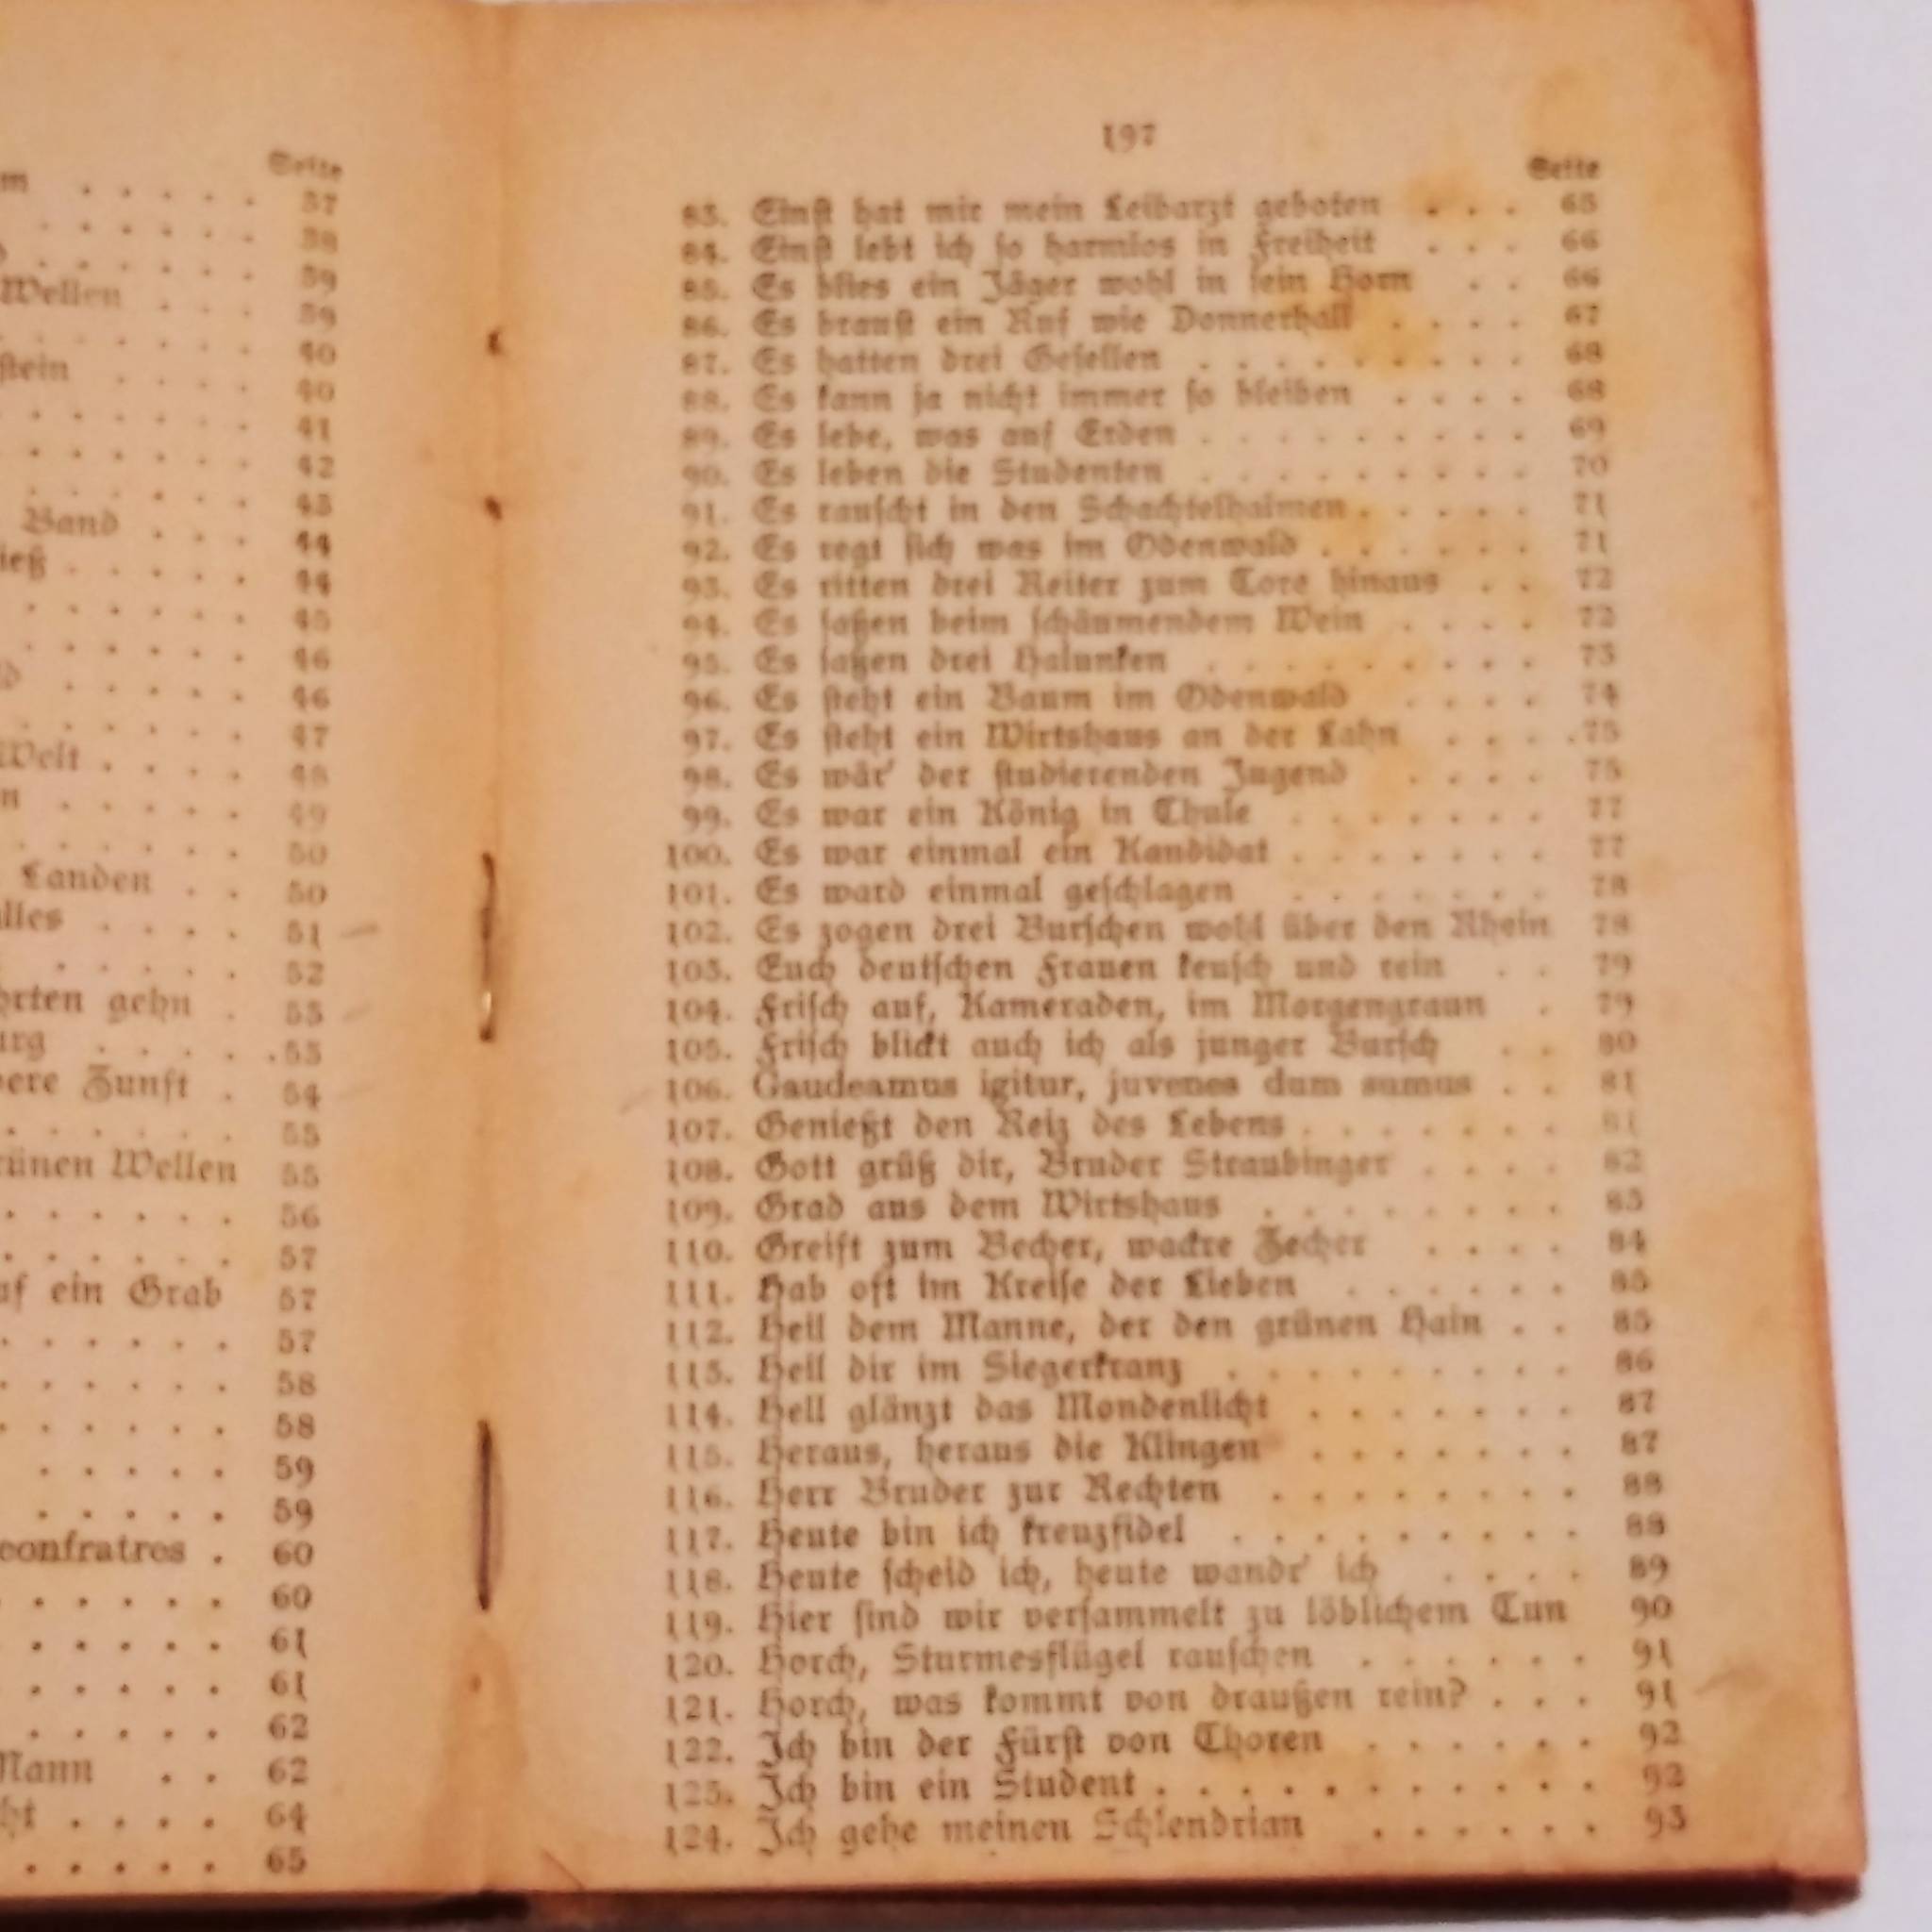 Seite
m . . . . . 37
. . . . . . 38
. . . . . . 39
Wellen . . . 39
. . . . . . 40
stein . . . . 40
. . . . . . 41
. . . . . . 42
. . . . . . 43
Band . . . 44
ieß . . . . . 44
. . . . . . 45
. . . . . . 46
d . . . . . 46
. . . . . . 47
Welt . . . . 48
n . . . . . 49
. . . . . . 50
Landen . . 50
lles . . . . 51
. . . . . 52
hrten gehn . 53
urg . . . . . 53
bere Zunft . 54
. . . . . . 55
rünen Wellen 55
. . . . . . 56
. . . . . . 57
uf ein Grab 57
. . . . . . 57
. . . . . . 58
. . . . . . 58
. . . . . 59
. . . . . 59
confratres . 60
. . . . . . 60
. . . . . . 61
. . . . . . 61
. . . . . . 62
Mann . . 62
ht . . . . 64
. . . . . 65
197
Seite
83. Einst hat mir mein Leibarzt geboten . . . 65
84. Einst lebt ich so harmlos in Freiheit . . . 66
85. Es blies ein Jäger wohl in sein Horn . . 66
86. Es braust ein Ruf wie Donnerhall . . . . 67
87. Es hatten drei Gesellen . . . . . . . . . 68
88. Es kann ja nicht immer so bleiben . . . . 68
89. Es lebe, was auf Erden . . . . . . . . . 69
90. Es leben die Studenten . . . . . . . . . 70
91. Es rauscht in den Schachtelhalmen . . . . . 71
92. Es regt sich was im Odenwald . . . . . . 71
93. Es ritten drei Reiter zum Tore hinaus . . 72
94. Es saßen beim schäumendem Wein . . . . 72
95. Es saßen drei Halunken . . . . . . . . . 73
96. Es steht ein Baum im Odenwald . . . . 74
97. Es steht ein Wirtshaus an der Lahn . . . . 75
98. Es wär' der studierenden Jugend . . . . 75
99. Es war ein König in Thule . . . . . . . 77
100. Es war einmal ein Kandidat . . . . . . . 77
101. Es ward einmal geschlagen . . . . . . . 78
102. Es zogen drei Burschen wohl über den Rhein 78
103. Euch deutschen Frauen keusch und rein . . 79
104. Frisch auf, Kameraden, im Morgengraun . 79
105. Frisch blickt auch ich als junger Bursch . . 80
106. Gaudeamus igitur, juvenes dum sumus . . 81
107. Genießt den Reiz des Lebens . . . . . . . 81
108. Gott grüß dir, Bruder Straubinger . . . . 82
109. Grad aus dem Wirtshaus . . . . . . . . 83
110. Greift zum Becher, wackre Zecher . . . . 84
111. Hab oft im Kreise der Lieben . . . . . . 85
112. Heil dem Manne, der den grünen Hain . . 85
113. Heil dir im Siegerkranz . . . . . . . . . 86
114. Hell glänzt das Mondenlicht . . . . . . . 87
115. Heraus, heraus die Klingen . . . . . . . 87
116. Herr Bruder zur Rechten . . . . . . . . 88
117. Heute bin ich kreuzfidel . . . . . . . . . 88
118. Heute scheid ich, heute wandr' ich . . . . 89
119. Hier sind wir versammelt zu löblichem Tun 90
120. Horch, Sturmesflügel rauschen . . . . . . 91
121. Horch, was kommt von draußen rein? . . . 91
122. Ich bin der Fürst von Thoren . . . . . . 92
123. Ich bin ein Student . . . . . . . . . . . 92
124. Ich gehe meinen Schlendrian . . . . . . 93